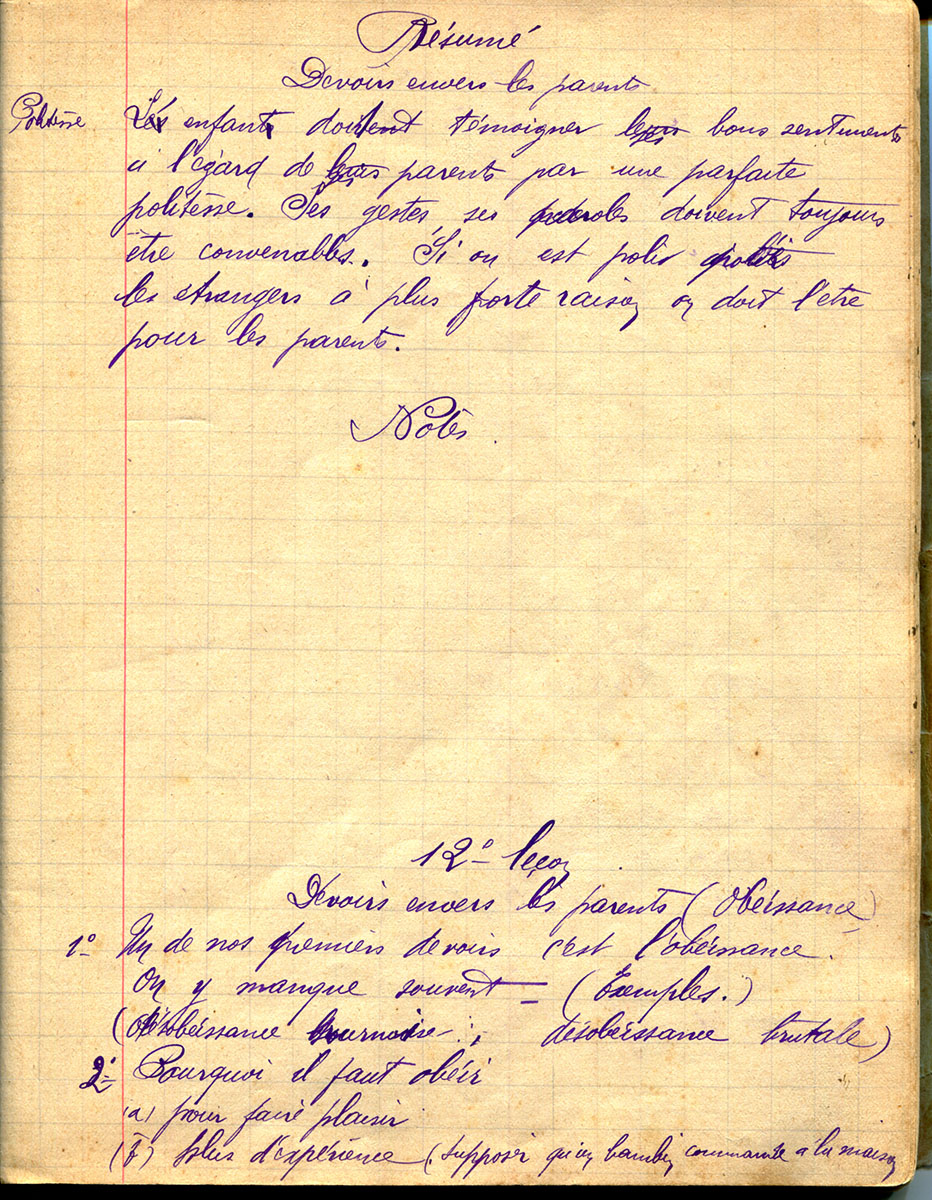 Résumé
Devoirs envers les parents
Politesse
Les enfants doivent témoigner ses bons sentiments
a l'égard de ses parents par une parfaite
politesse. Ses gestes ses paroles doivent toujours
être convenables. Si on est polis
les étrangers à plus forte raison on doit l'être
pour les parents.
Notes
12º leçon
Devoirs envers les parents (Obéissance)
1º Un de nos premiers devoirs c'est l'obéissance.
On y manque souvent - (Exemples.)
(désobéissance sournoise ; désobéissance brutale)
2º Pourquoi il faut obéir
(a) pour faire plaisir
(b) plus d'expérience (supposer qu'un bambin commande a la maison